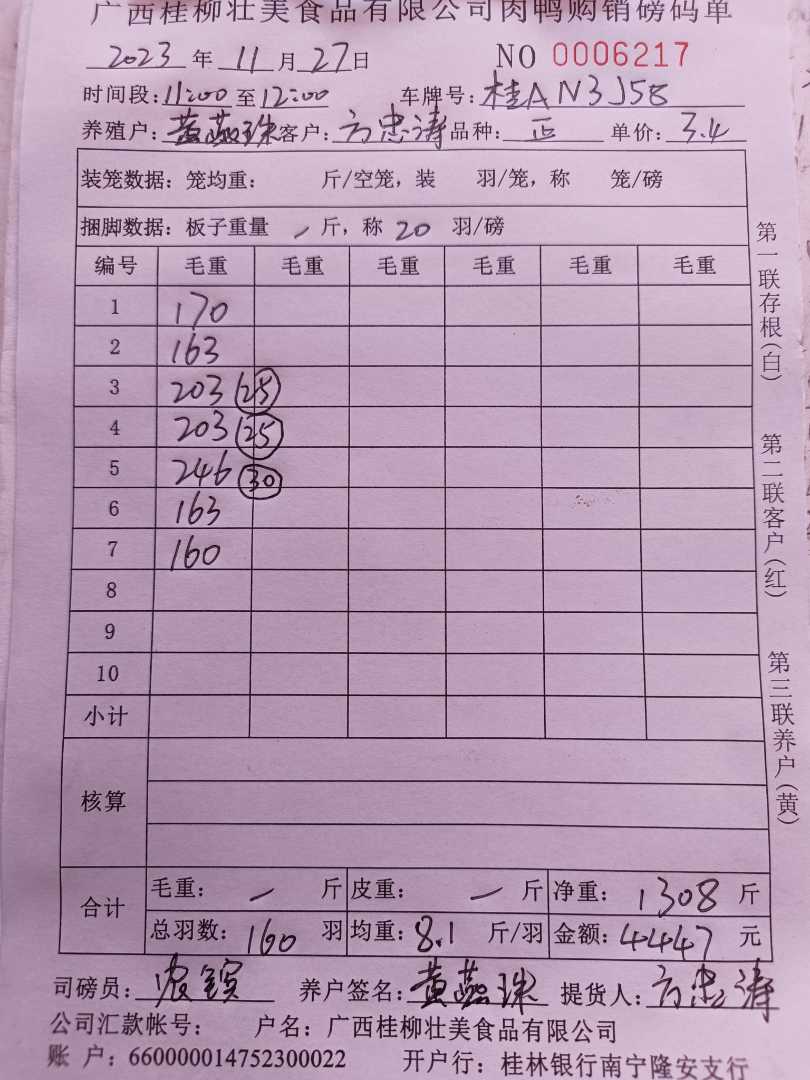 广西桂柳壮美食品有限公司肉鸭购销磅码单
2023 年 11 月 27 日 NO 0006217
时间段: 11:00 至 12:00 车牌号: 桂AN3J58
养殖户: 黄燕珠 客户: 方忠涛 品种: 正 单价: 3.4
装笼数据: 笼均重: 斤/空笼, 装 羽/笼, 称 笼/磅
捆脚数据: 板子重量 - 斤, 称 20 羽/磅
编号 毛重 毛重 毛重 毛重 毛重 毛重
1 170
2 163
3 203 25
4 203 25
5 246 30
6 163
7 160
8
9
10
小计
核算
合计
毛重: - 斤 皮重: - 斤 净重: 1308 斤
总羽数: 160 羽 均重: 8.1 斤/羽 金额: 4447 元
司磅员: 养户签名: 黄燕珠 提货人: 方忠涛
公司汇款帐号: 户名: 广西桂柳壮美食品有限公司
账 户: 660000014752300022 开户行: 桂林银行南宁隆安支行
第一联存根(白)
第二联客户(红)
第三联养户(黄)